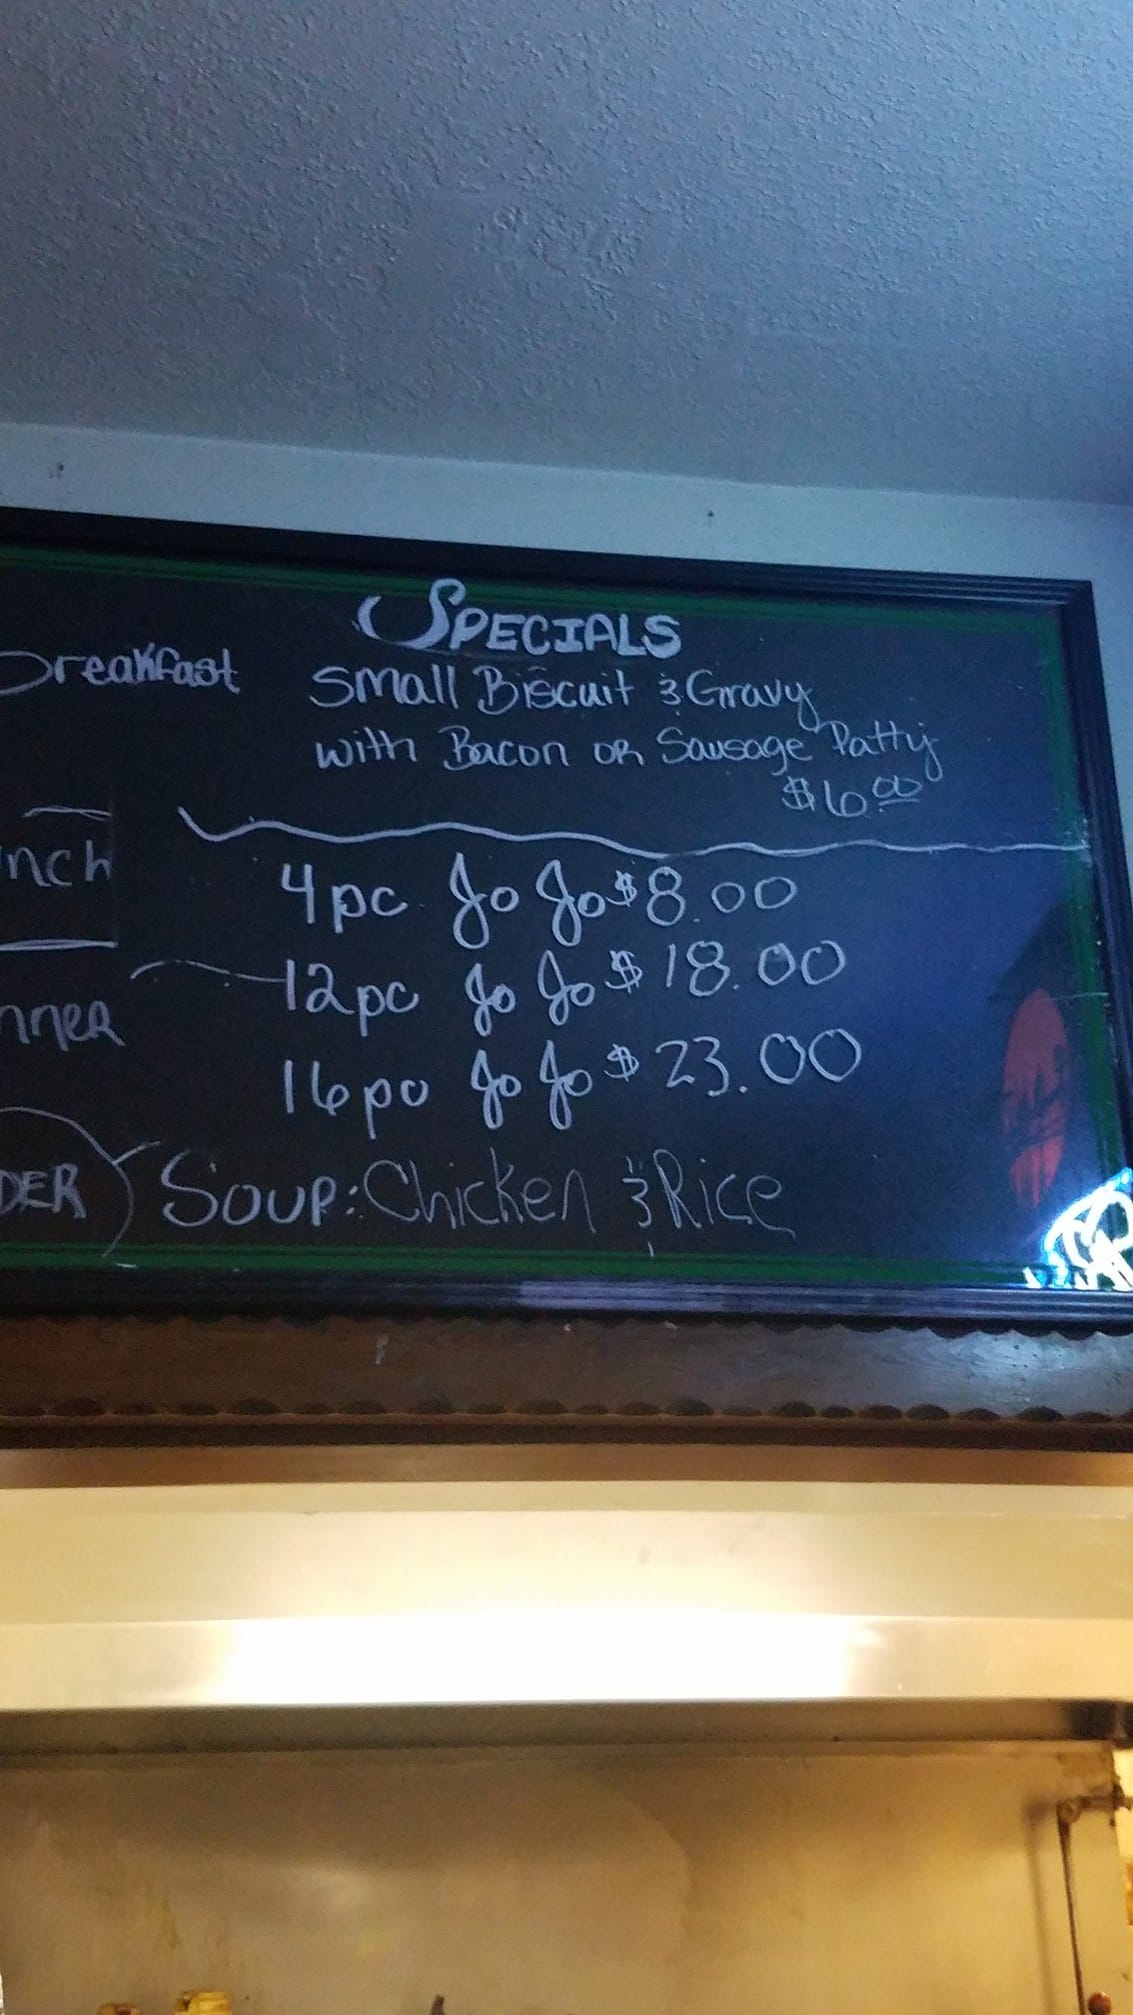 SPECIALS
Breakfast Small Biscuit & Gravy
with Bacon or Sausage Patty
$6.00
nch 4pc Jo Jo $8.00
12pc Jo Jo $18.00
nner 16pc Jo Jo $23.00
DER Soup: Chicken & Rice